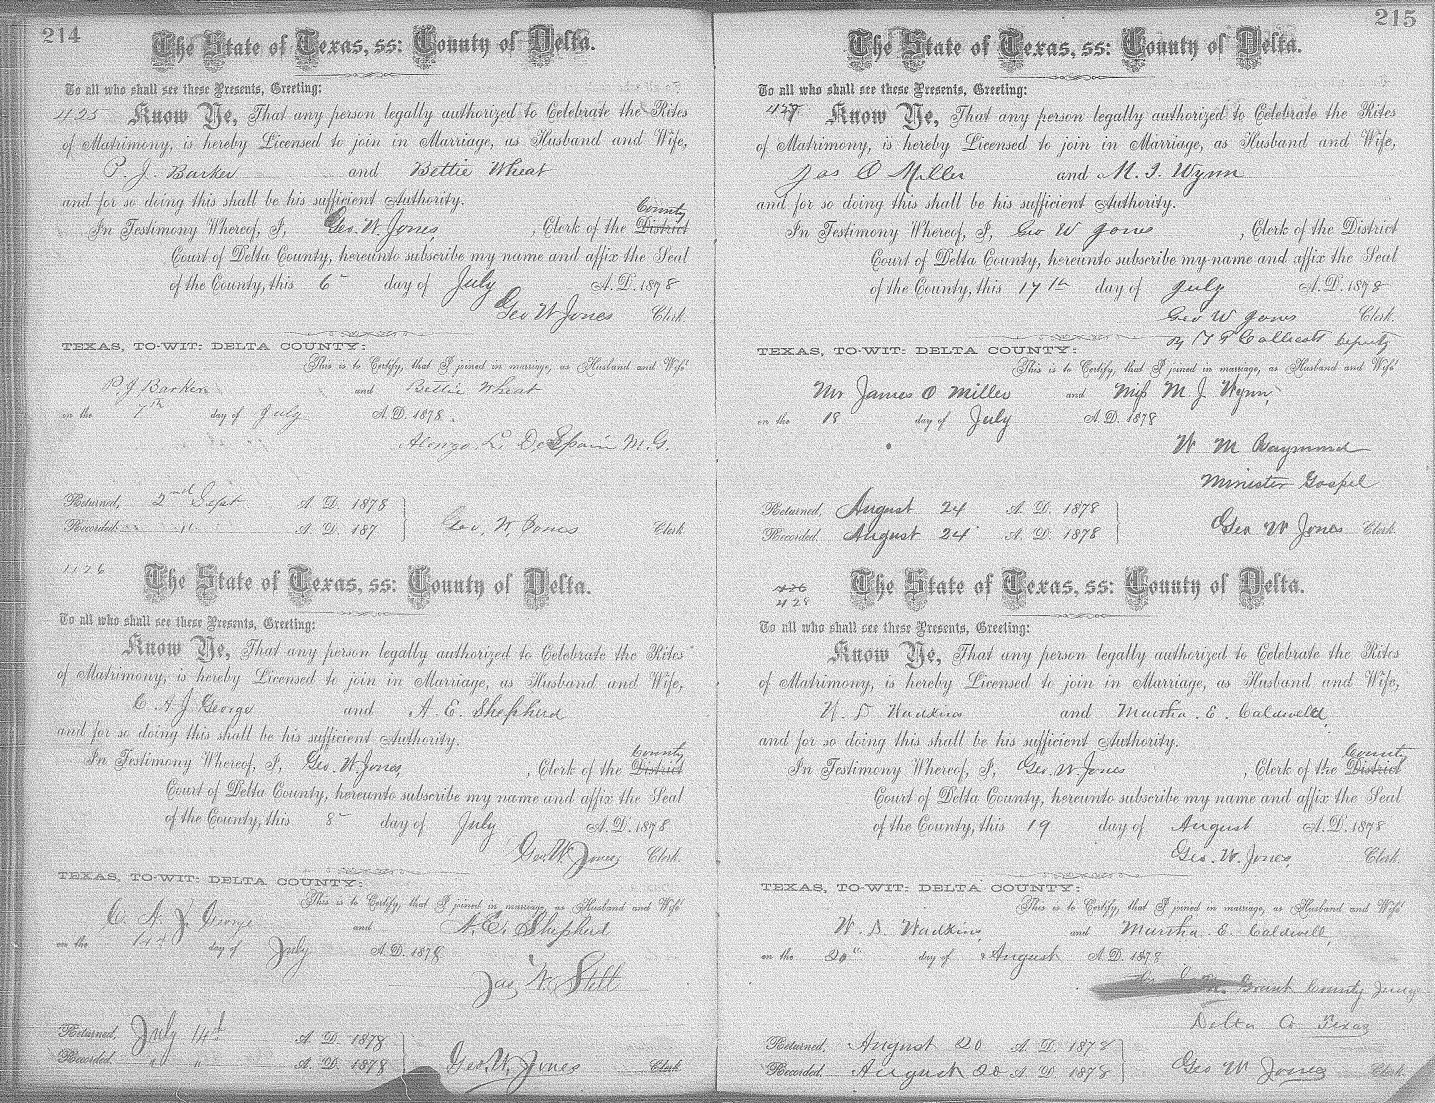 214
The State of Texas, ss: County of Delta.
To all who shall see these Presents, Greeting:
425 Know Ye, That any person legally authorized to Celebrate the Rites
of Matrimony, is hereby Licensed to join in Marriage, as Husband and Wife,
P. J. Barker and Bettie Wheat
and for so doing this shall be his sufficient Authority.
County
In Testimony Whereof, I, Geo. W. Jones, , Clerk of the District
Court of Delta County, hereunto subscribe my name and affix the Seal
of the County, this 6 day of July A. D. 1878
Geo W Jones Clerk.
TEXAS, TO-WIT: DELTA COUNTY:
This is to Certify, that I joined in marriage, as Husband and Wife
P J Barker and Bettie Wheat
on the 7th day of July A. D. 1878.
Alonzo L. DeSpain M. G.
Returned, 2nd Sept A. D. 1878
Recorded " " A. D. 187
Geo. W. Jones Clerk
1126
The State of Texas, ss: County of Delta.
To all who shall see these Presents, Greeting:
Know Ye, That any person legally authorized to Celebrate the Rites
of Matrimony, is hereby Licensed to join in Marriage, as Husband and Wife,
C A J George and A. E. Shepherd
and for so doing this shall be his sufficient Authority.
County
In Testimony Whereof, I, Geo. W. Jones, , Clerk of the District
Court of Delta County, hereunto subscribe my name and affix the Seal
of the County, this 8 day of July A. D. 1878
Geo. W. Jones Clerk.
TEXAS, TO-WIT: DELTA COUNTY:
This is to Certify, that I joined in marriage, as Husband and Wife
C. A. J. George and A. E. Shepherd
on the day of July A. D. 1878
Jas. W. Still
Returned, July 14th A. D. 1878
Recorded " " A. D. 1878
Geo. W. Jones Clerk
215
The State of Texas, ss: County of Delta.
To all who shall see these Presents, Greeting:
427 Know Ye, That any person legally authorized to Celebrate the Rites
of Matrimony, is hereby Licensed to join in Marriage, as Husband and Wife,
Jas O Miller and M. J. Wynn
and for so doing this shall be his sufficient Authority.
In Testimony Whereof, I, Geo W Jones , Clerk of the District
Court of Delta County, hereunto subscribe my name and affix the Seal
of the County, this 17th day of July A. D. 1878
Geo W Jones Clerk.
by Deputy
TEXAS, TO-WIT: DELTA COUNTY:
This is to Certify, that I joined in marriage, as Husband and Wife
Mr James O Miller and Miss M. J. Wynn,
on the 18 day of July A. D. 1878
W M Raymond
Minister Gospel
Returned, August 24 A. D. 1878
Recorded. August 24 A. D. 1878
Geo W Jones Clerk.
426
428
The State of Texas, ss: County of Delta.
To all who shall see these Presents, Greeting:
Know Ye, That any person legally authorized to Celebrate the Rites
of Matrimony, is hereby Licensed to join in Marriage, as Husband and Wife,
W. D Wadkins and Martha. E. Caldwell,
and for so doing this shall be his sufficient Authority.
County
In Testimony Whereof, I, Geo. W Jones , Clerk of the District
Court of Delta County, hereunto subscribe my name and affix the Seal
of the County, this 19 day of August A. D. 1878
Geo. W. Jones, Clerk.
TEXAS, TO-WIT: DELTA COUNTY:
This is to Certify, that I joined in marriage, as Husband and Wife
W. D. Wadkins, and Martha. E. Caldwell,
on the 20th day of August A. D. 1878
Grant County Judge
Delta Co Texas
Returned. August 20 A. D. 1878
Recorded. August 20 A. D. 1878
Geo W Jones Clerk.